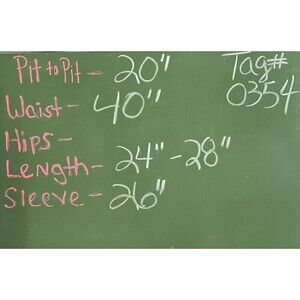 Pit to Pit - 20"
Waist - 40"
Hips -
Length - 24" - 28"
Sleeve - 26"
Tag#
0354